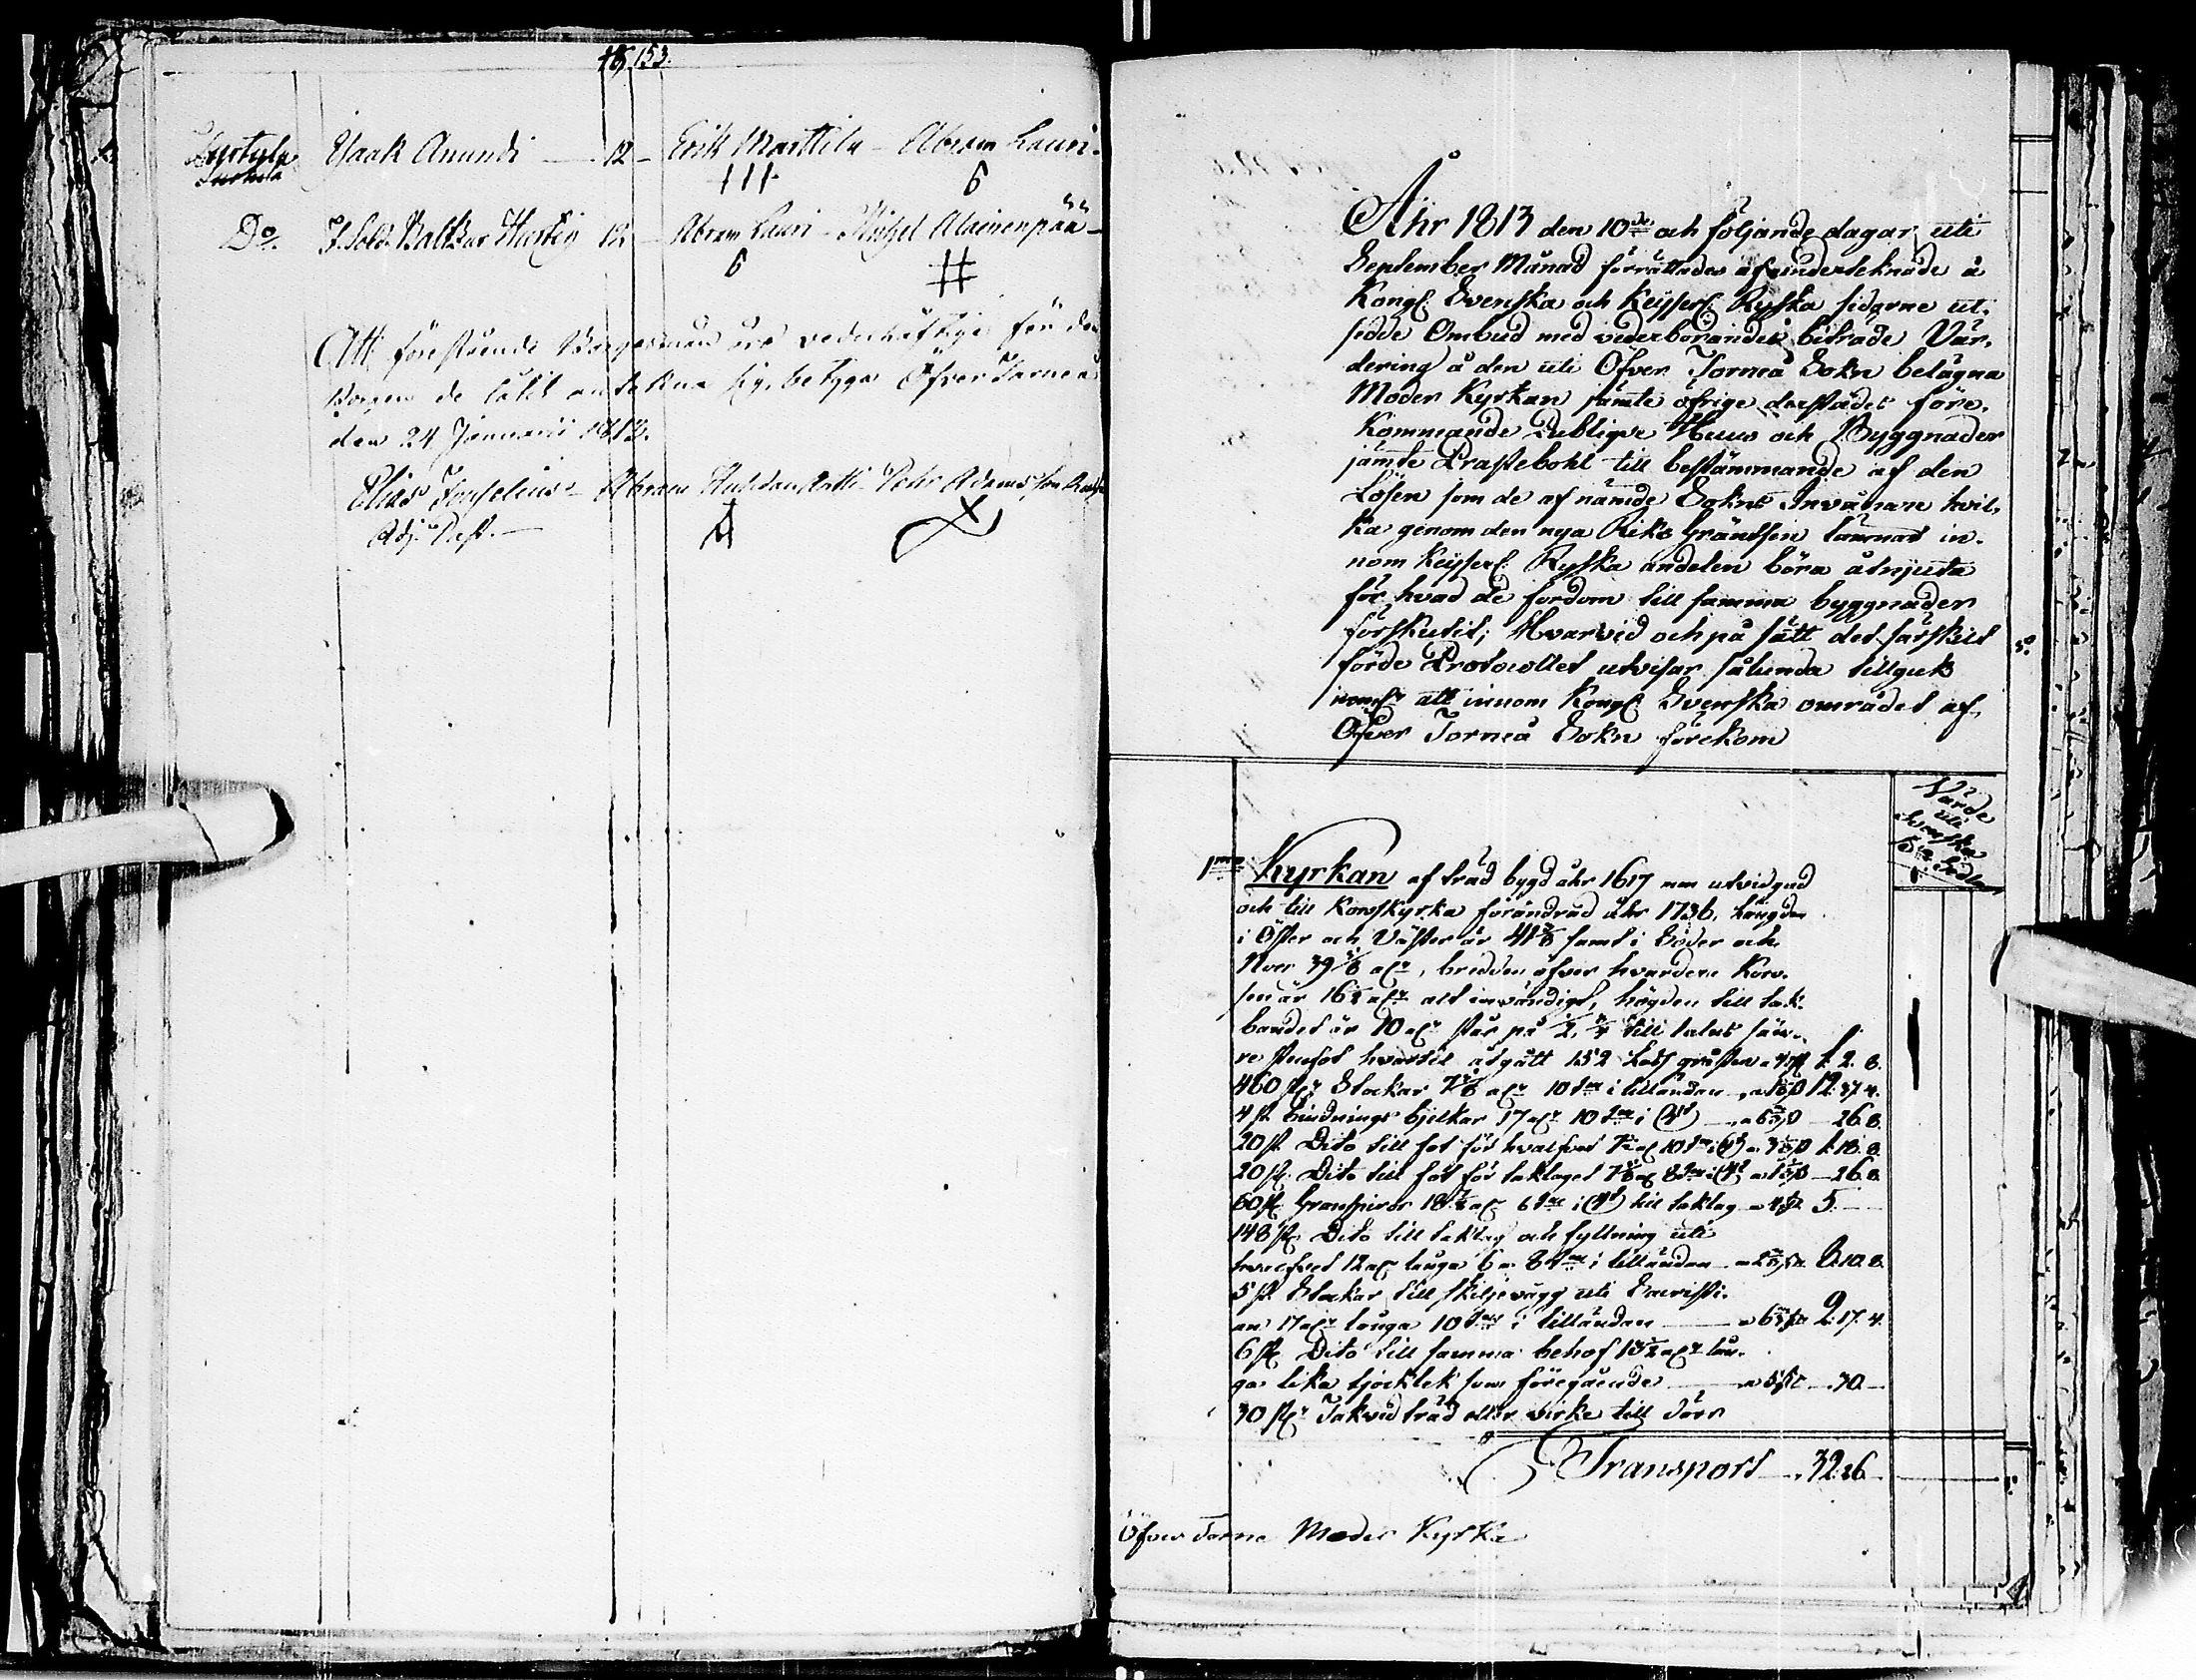 153.
Isaak Anundi — 12 — Erik Marttila — Abram Lauri.
Do. f. Sold. Baltzar Hurtig 12 — Abram Lauri — Michel Alainenpää —
Att förestående Borgesmän äro vederhäftige för den
Borgen de låtit anteckna sig, betyga Öfver Torneå
den 24 Januarii 1813.
Elias — Abram — Pehr Adamsson
Adj. Past. —
Åhr 1813 den 10de och följande dagar uti
September Månad förrättades af undertecknade å
Kongl. Svenska och Keyserl. Ryska sidorne ut-
sedde Ombud med vederbörandes biträde Vär-
dering å den uti Öfver Torneå Sokn belägna
Moder Kyrkan jämte öfrige derstädes före-
kommande Publique Huus och Byggnader
jämte Prästebohl till bestämmande af den
Lösen som de af nämde Sokns Invånare hvil-
ka genom den nya Riks Gräntsen lämnas in-
nom Keyserl. Ryska andelen böra åtnjuta
för hvad de fordom till samma byggnader
förskutit; Hvarvid och på sätt det särskilt
förde Protocollet utvisar sålunda tillgick
neml. att innom Kongl. Svenska området af
Öfver Torneå Sokn förekom
Värde
uti
Svenska
1mo Kyrkan af träd bygd åhr 1617 men utvidgad
och till Korskyrka förändrad åhr 1736. Längden
i Öster och Väster är 41 3/8 samt i Söder och
Norr 39 3/8 alr, bredden öfver hvardera Kors-
sen är 16 1/2 alr alt invändigt, högden till tak-
bandet är 10 alr står på till talet
re stenfot hvartil åtgått 152 lass gråsten 1. 2. 8.
460 st. Stockar alr 10 tm i lilländan 12. 37. 4.
4 st. Bindnings bjelkar 17 alr 10 tm i — 26. 8.
20 st. Dito till fot för hvalfvet 10 tm i 1. 18. 8.
20 st. Dito till fot för taklaget 8 tm i — 26. 8.
60 st. Granspiror 18 1/2 alr 6 tm i till taklag 5. —
148 st. Dito till taklag och fyllning uti
hvalfvet 12 alr långa 6 a 8 tm i lilländan 8. 10. 8.
5 st. Stockar till skiljevägg uti Sacristi-
an 17 alr långa 10 tm i lilländan 2. 17. 4.
6 st. Dito till samma behof 13 1/2 alr lån-
ga lika tjocklek som föregående — 30. —
30 st. Takved träd eller virke till dörr
Transport — 32. 26 —
Öfver Torne Moder Kyrka